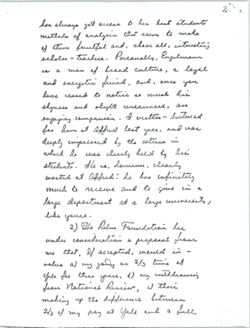 2
has always got across to his best students
methods of analysis that seem to make
of them fruitful and, above all, interesting
scholar-teachers. Personally, Engelmann
is a man of broad culture, a loyal
and energetic friend, and, once you
have ceased to notice so much his
shyness and slight uneasiness, an
engaging companion. I
for him at Alfred last year, and was
deeply impressed by the esteem in
which he was clearly held by his
students. He is, however, clearly
wasted at Alfred: he has infinitely
much to receive and to give in a
large department at a large university,
like yours.
2) The Relm Foundation has
under consideration a proposal from
me that, if accepted, would in-
volve a) my going on 2/3 time at
Yale for three years, b) my withdrawing
from National Review, c) their
making up the difference between
2/3 of my pay at Yale and a full